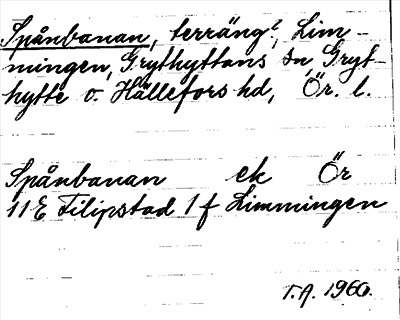 Spånbanan, terräng?, Lim-
mningen, Grythyttans sn, Gryt-
hytte o. Hällefors hd, Ör. l.
Spånbanan ek Ör
11 E Filipstad 1 f Limmingen
T.A. 1960.